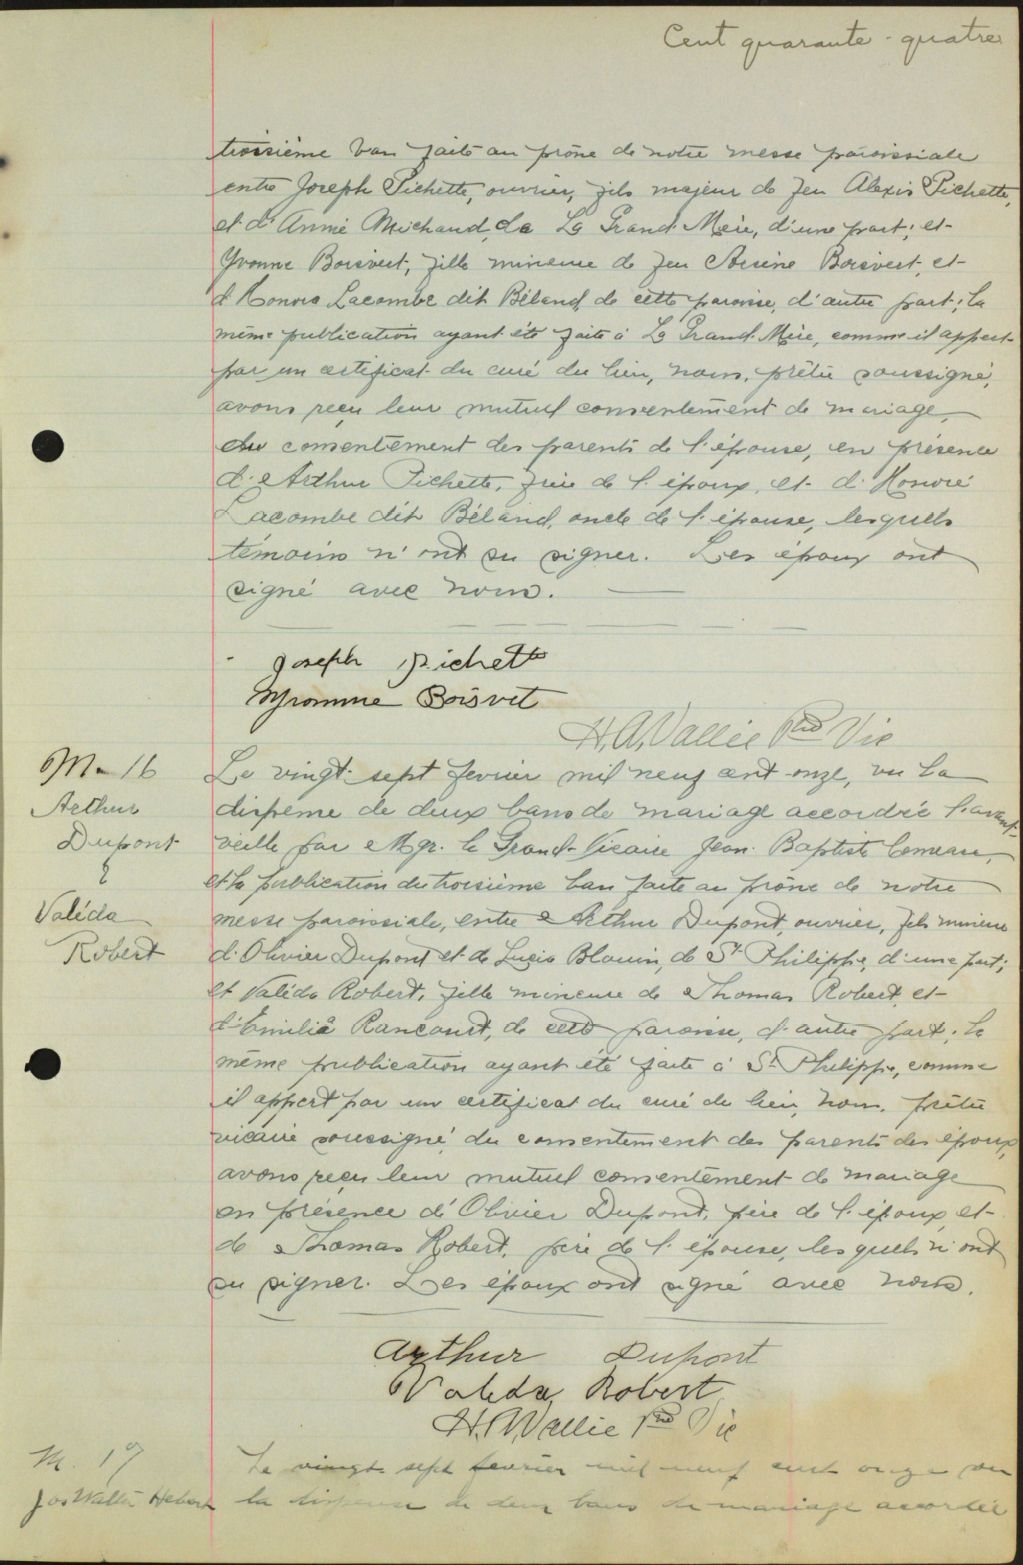 Cent quarante-quatre
troisième ban faite au prône de notre messe paroissiale
entre Joseph Pichette, ouvrier, fils majeur de feu Alexis Pichette,
et d'Annie Michaud, de La Grand'Mère, d'une part; et
Yvonne Boisvert, fille mineure de feu Arsène Boisvert, et
d'Honora Lacombe dit Béland, de cette paroisse, d'autre part; la
même publication ayant été faite à La Grand'Mère, comme il appert
par un certificat du curé du lieu, nous, prêtre soussigné,
avons reçu leur mutuel consentement de mariage,
du consentement des parents de l'épouse, en présence
d'Arthur Pichette, frère de l'époux, et d'Honoré
Lacombe dit Béland, oncle de l'épouse, lesquels
témoins n'ont su signer. Les époux ont
signé avec nous.
Joseph Pichette
Yvonne Boisvet
H. A. Vallée Ptre Vic
M-16
Arthur
Dupont
&
Valéda
Robert
Le vingt-sept fevrier mil neuf cent onze, vu la
dispense de deux bans de mariage accordée l'avant-
veille par Mgr. le Grand-Vicaire Jean-Baptiste Comeau,
et la publication du troisième ban faite au prône de notre
messe paroissiale, entre Arthur Dupont, ouvrier, fils mineur
d'Olivier Dupont et de Lucia Blouin, de St Philippe, d'une part;
et Valéda Robert, fille mineure de Thomas Robert, et
d'Emilia Rancourt, de cette paroisse, d'autre part; la
même publication ayant été faite à St Philippe, comme
il appert par un certificat du curé du lieu, nous, prêtre
vicaire soussigné, du consentement des parents des époux,
avons reçu leur mutuel consentement de mariage
en présence d'Olivier Dupont, père de l'époux, et
de Thomas Robert, père de l'épouse, lesquels n'ont
su signer. Les époux ont signé avec nous.
Arthur Dupont
Valeda Robert
H. A. Vallée Ptre Vic
M. 17
Jos Walter Hebert
Le vingt sept fevrier mil neuf cent onze vu
la dispense de deux bans de mariage accordée